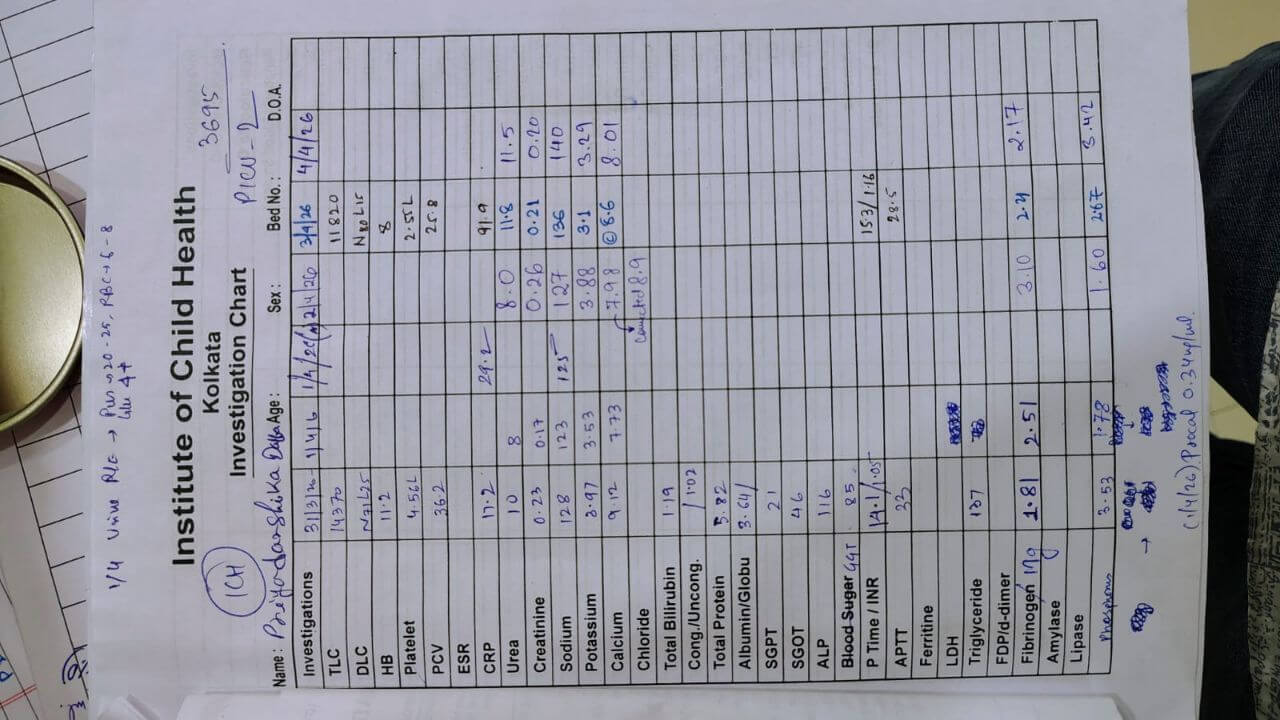 1/4 urine R/E → Pus → 20-25, RBC → 6-8
Institute of Child Health
Kolkata 3695
ICH Investigation Chart PICU-2
Name : Priyadarshika Age : Sex : Bed No.: D.O.A.
Investigations 31/3/26 1/4/6 2/4/26 3/4/26 4/4/26
TLC 14370 11820
DLC N71L25 N80L15
HB 11.2 8
Platelet 4.56L 2.55L
PCV 36.2 25.8
ESR
CRP 17.2 29.2 91.9
Urea 10 8 8.0 11.8 11.5
Creatinine 0.23 0.17 0.26 0.21 0.20
Sodium 128 123 125 127 136 140
Potassium 3.97 3.53 3.88 3.1 3.29
Calcium 9.12 7.73 7.98 8.6 8.01
Chloride corrected 8.9
Total Bilirubin 1.19
Cong./Uncong. /1.02
Total Protein 5.82
Albumin/Globu 3.64/
SGPT 21
SGOT 46
ALP 116
Blood Suger GGT 85
P Time / INR 14.1/1.05 15.3/1.16
APTT 33 28.5
Ferritine
LDH
Triglyceride 137
FDP/d-dimer
Fibrinogen Mg 1.81 2.51 3.10 2.4 2.17
Amylase
Lipase
Phosphorus 3.53 1.78 1.60 2.87 3.42
→
(1/4/26) Procal 0.34 ng/ml.